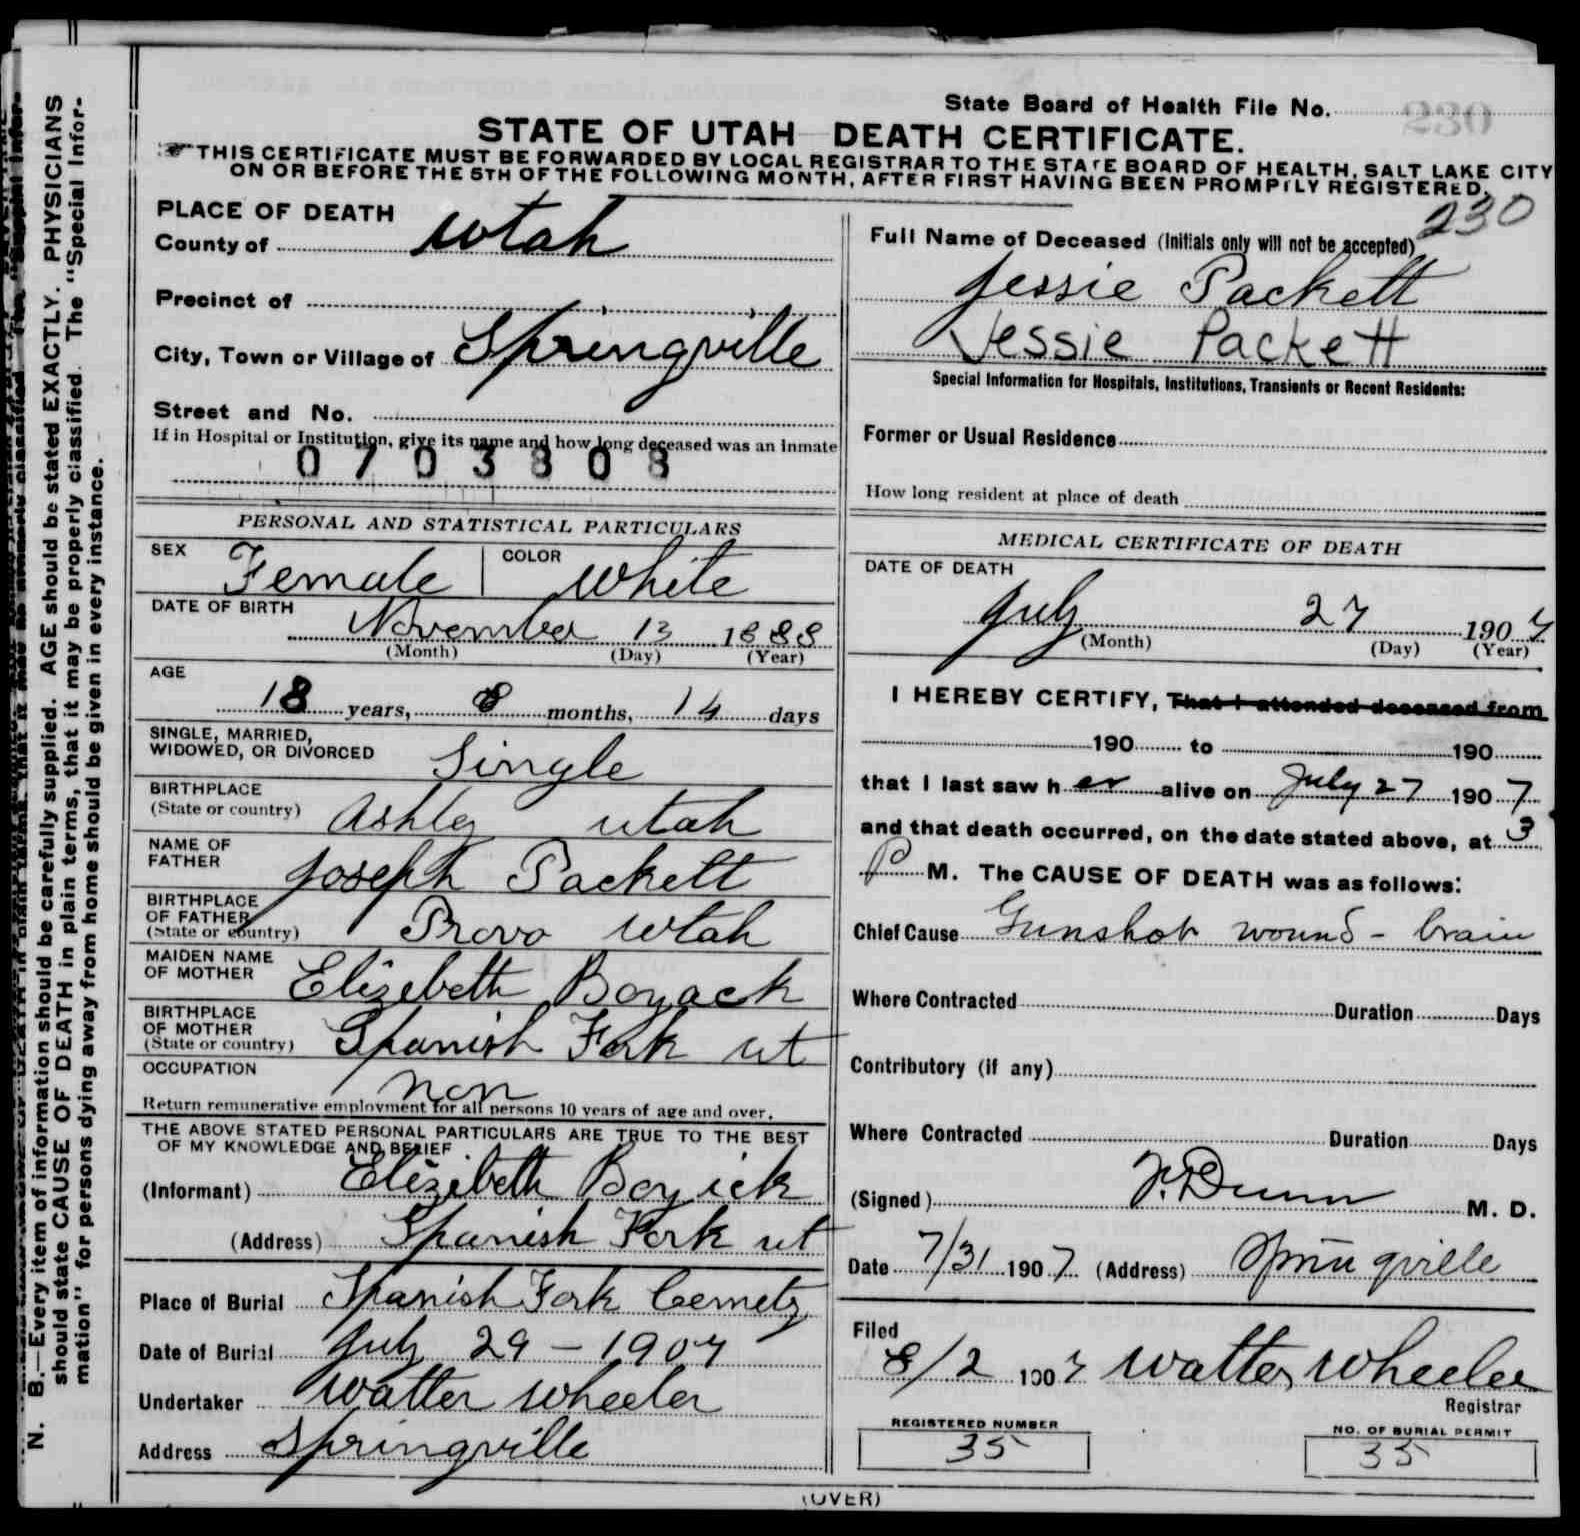 State Board of Health File No. 230
STATE OF UTAH DEATH CERTIFICATE.
THIS CERTIFICATE MUST BE FORWARDED BY LOCAL REGISTRAR TO THE STATE BOARD OF HEALTH, SALT LAKE CITY
ON OR BEFORE THE 5TH OF THE FOLLOWING MONTH, AFTER FIRST HAVING BEEN PROMPTLY REGISTERED.
230
PLACE OF DEATH
County of Utah
Precinct of
City, Town or Village of Springville
Street and No.
If in Hospital or Institution, give its name and how long deceased was an Inmate
0703808
PERSONAL AND STATISTICAL PARTICULARS
SEX Female COLOR White
DATE OF BIRTH
November 13 1888
(Month) (Day) (Year)
AGE
18 years, 8 months, 14 days
SINGLE, MARRIED,
WIDOWED, OR DIVORCED Single
BIRTHPLACE
(State or country) Ashley Utah
NAME OF
FATHER Joseph Packett
BIRTHPLACE
OF FATHER
(State or country) Provo Utah
MAIDEN NAME
OF MOTHER Elizebeth Boyack
BIRTHPLACE
OF MOTHER
(State or country) Spanish Fork ut
OCCUPATION
non
Return remunerative employment for all persons 10 years of age and over.
THE ABOVE STATED PERSONAL PARTICULARS ARE TRUE TO THE BEST
OF MY KNOWLEDGE AND BELIEF
(Informant) Elizibeth Boyick
(Address) Spanish Fork ut
Place of Burial Spanish Fork Cemety
Date of Burial July 29 - 1907
Undertaker Walter Wheeler
Address Springville
Full Name of Deceased (Initials only will not be accepted)
Jessie Packett
Jessie Packett
Special Information for Hospitals, Institutions, Transients or Recent Residents:
Former or Usual Residence
How long resident at place of death
MEDICAL CERTIFICATE OF DEATH
DATE OF DEATH
July 27 1907
(Month) (Day) (Year)
I HEREBY CERTIFY, That I attended deceased from
190 to 190
that I last saw her alive on July 27 1907
and that death occurred, on the date stated above, at 3
P M. The CAUSE OF DEATH was as follows:
Chief Cause Gunshot wound - brain
Where Contracted Duration Days
Contributory (if any)
Where Contracted Duration Days
(Signed) F. Dunn M. D.
Date 7/31 1907 (Address) Springville
Filed
8/2 1907 Walter Wheeler
Registrar
REGISTERED NUMBER
35
NO. OF BURIAL PERMIT
35
(OVER)
N. B.—Every item of information should be carefully supplied. AGE should be stated EXACTLY. PHYSICIANS
should state CAUSE OF DEATH in plain terms, that it may be properly classified. The "Special Infor-
mation" for persons dying away from home should be given in every instance.